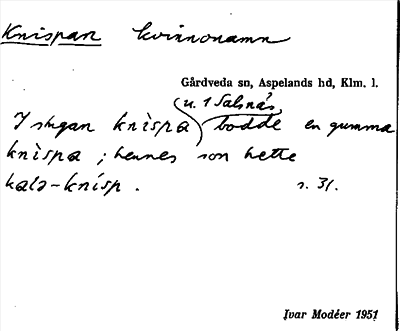 Knispan kvinnonamn
Gårdveda sn, Aspelands hd, Klm. l.
u. 1 Salsnäs
I stugan knìspa bodde en gumma
knìspa ; hennes son hette
kalə-knísp . s. 31.
Ivar Modéer 1951